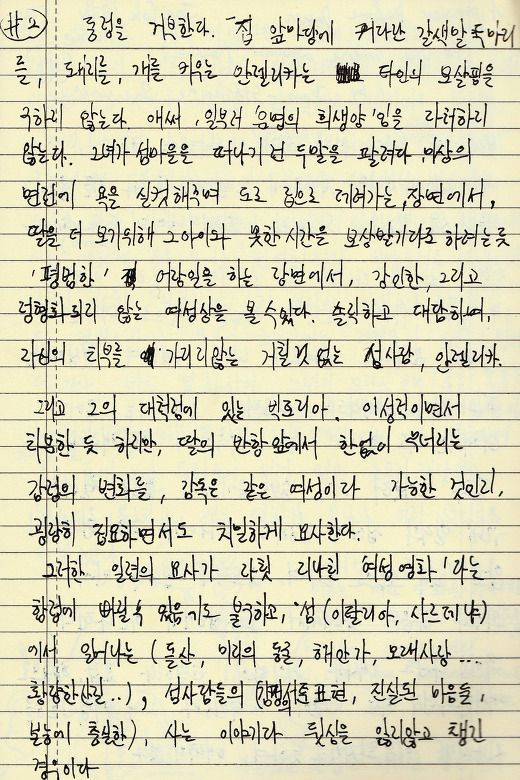 #2) 동정을 거부한다. 집 앞마당에 커다란 갈색말 두마리
를, 돼지를, 개를 키우는 안젤리카는 타인의 보살핌을
구하지 않는다. 애써, 일부러 '운명의 희생양'임을 자처하지
않는다. 그녀가 섬마을을 떠나기전 두말을 팔려다, 의
면전에 욕을 실컷해주며 도로 집으로 데려가는, 장면에서,
딸을 더 보기위해 그아이와 못한시간을 보상받기라도 하려는듯
'평범한' 일을 하는 장면에서, 강인한, 그리고
정형화되지 않는 여성상을 볼수있다. 솔직하고 대담하며,
자신의 치부를 가리지않는 거릴것 없는 섬사람, 안젤리카.
그리고 그의 대척점에 있는 빅토리아. 이성적이면서
차분한 듯 하지만, 딸의 반항 앞에서 한없이 무너지는
감정의 변화를, 감독은 같은 여성이라 가능한 것인지,
굉장히 집요하면서도 치밀하게 묘사한다.
그러한 일련의 묘사가 자칫 '지나친 여성영화'라는
함정에 빠질수 있음기도 불구하고, '섬 (이탈리아, 사르데냐)
에서 일어나는 (돌산, 미지의 동굴, 해안가, 모래사장...
황량한산길..), 섬사람들의 (감정의 서툰표현, 진실된 마음들,
본능에 충실한), 사는 이야기다 뒷심을 잃지않고 챙긴
경우이다